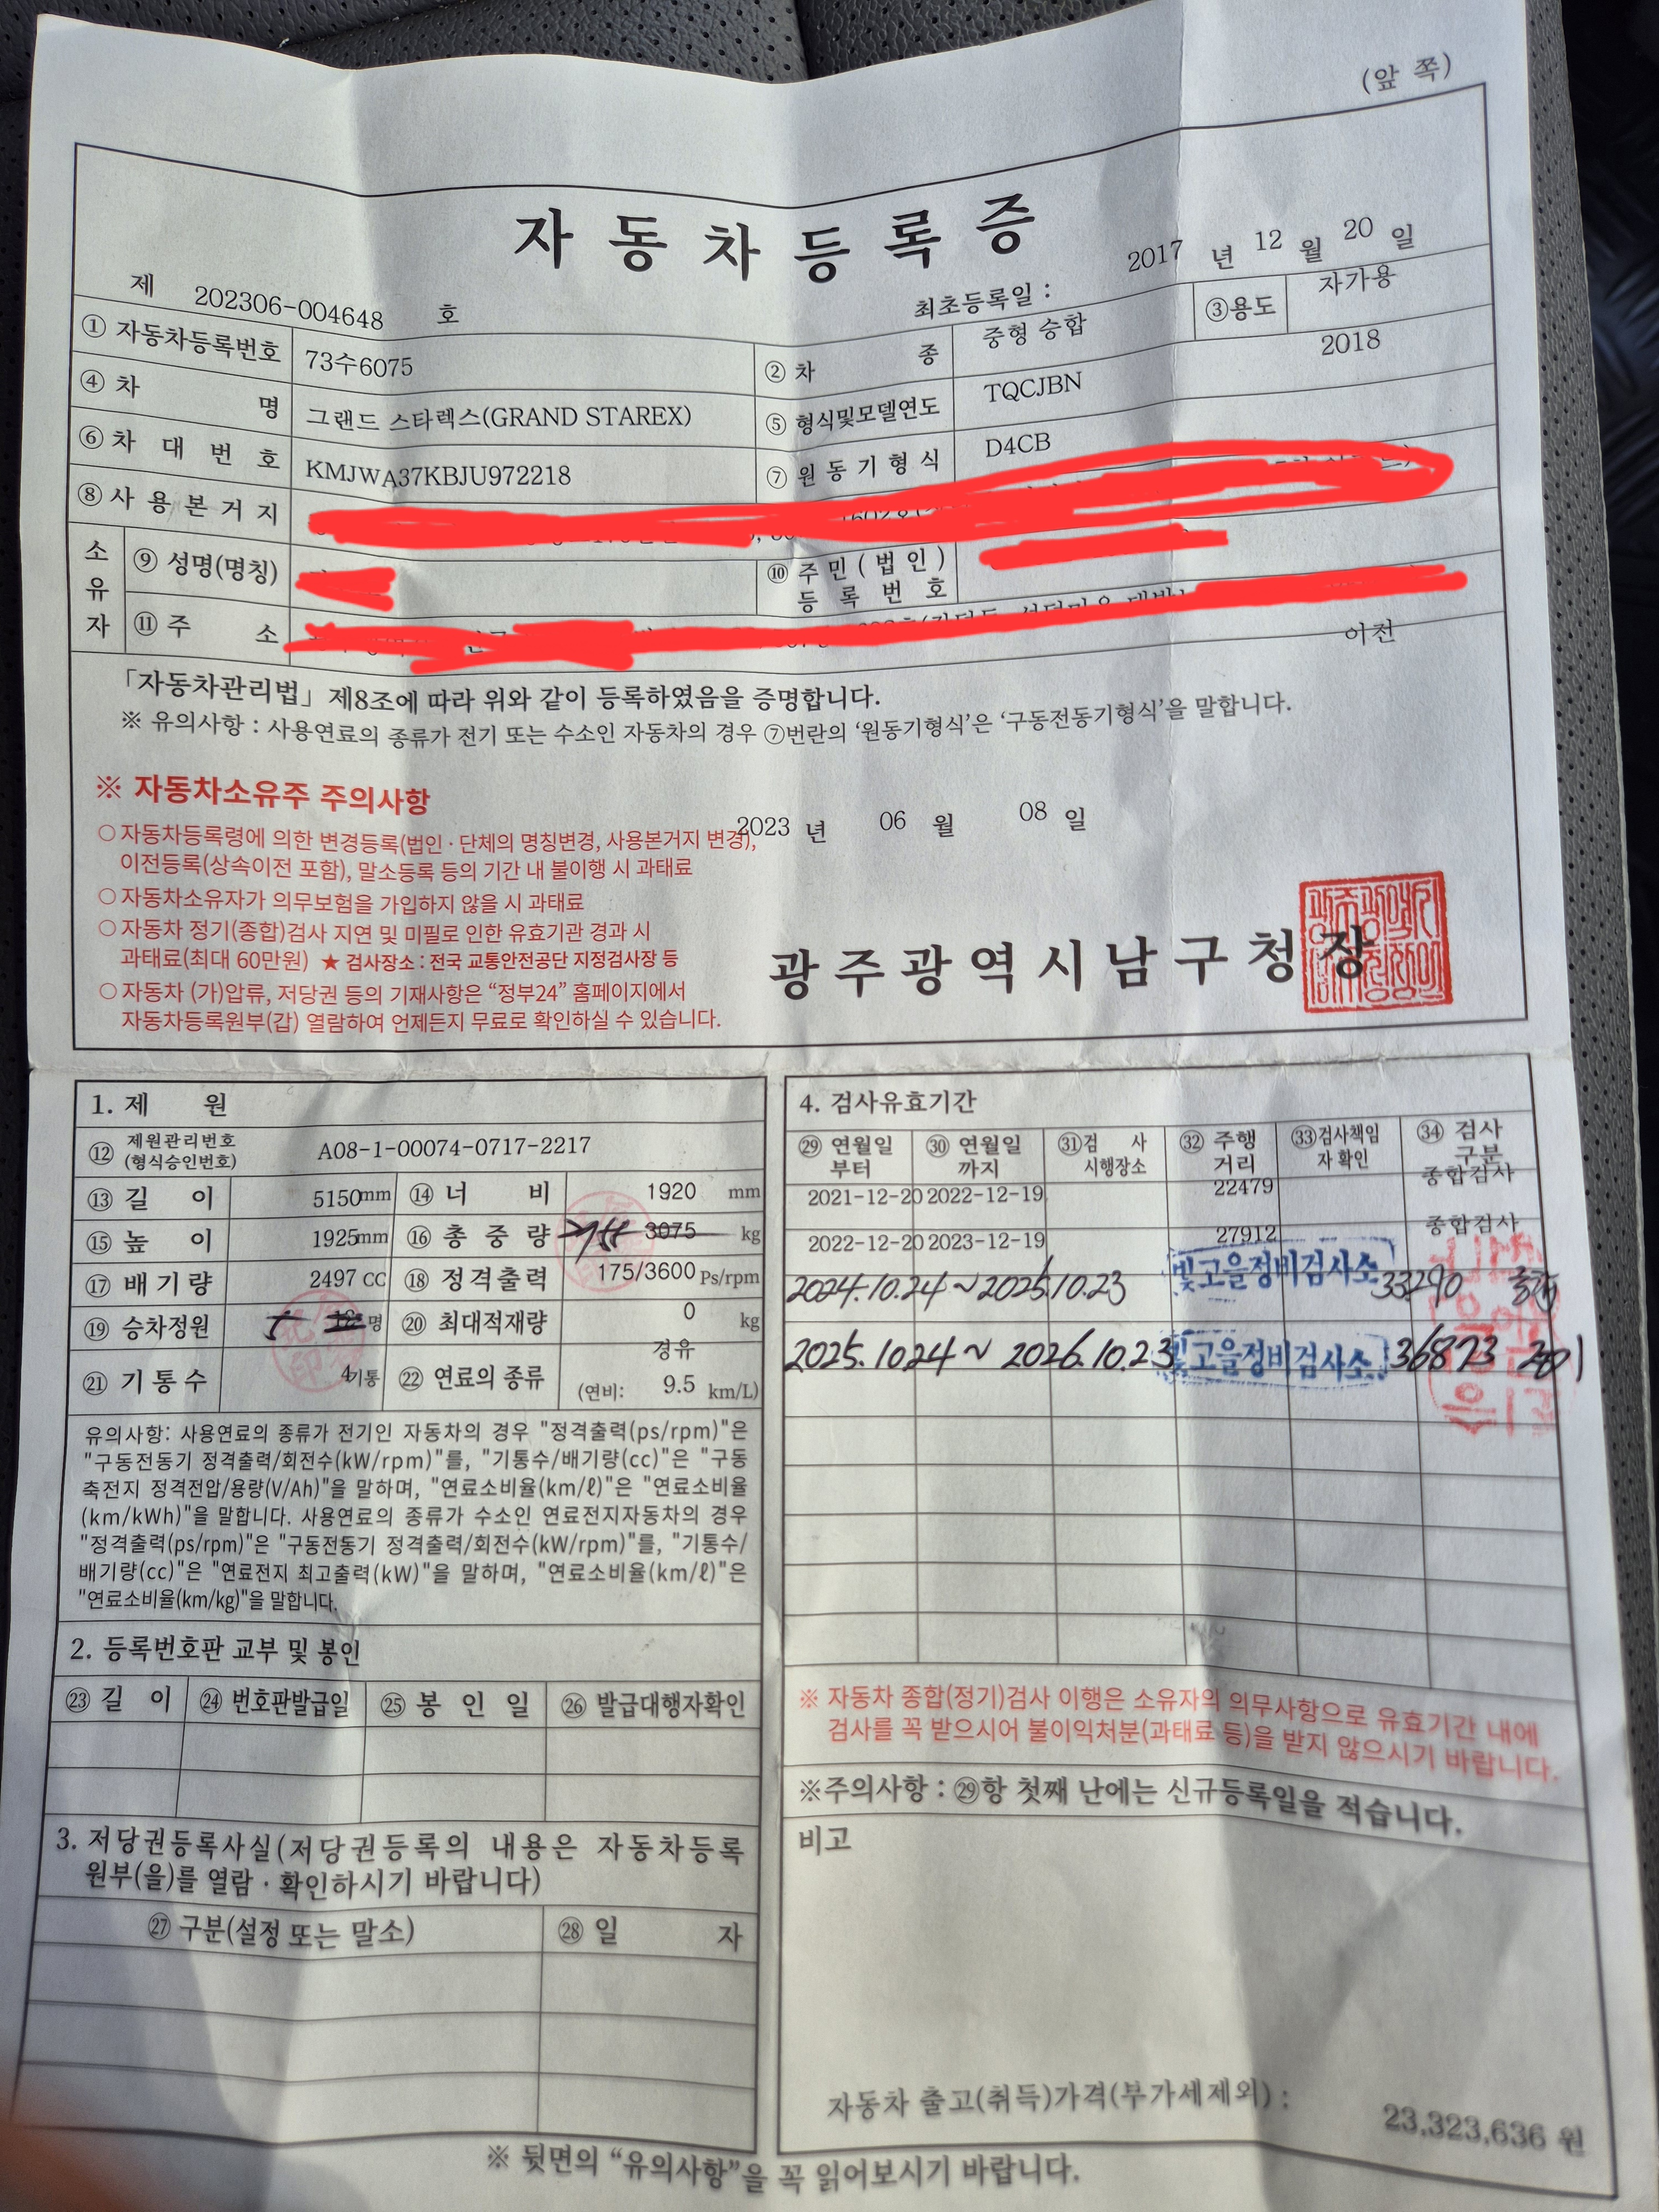 (앞 쪽)
자동차등록증
제 202306-004648 호
최초등록일 : 2017 년 12 월 20 일
① 자동차등록번호 73수6075 ② 차 종 중형 승합 ③용도 자가용
④ 차 명 그랜드 스타렉스(GRAND STAREX) ⑤ 형식및모델연도 TQCJBN 2018
⑥ 차 대 번 호 KMJWA37KBJU972218 ⑦ 원 동 기 형 식 D4CB
⑧ 사 용 본 거 지
소유자 ⑨ 성명(명칭) ⑩ 주 민 ( 법 인 ) 등 록 번 호
⑪ 주 소
이전
「자동차관리법」 제8조에 따라 위와 같이 등록하였음을 증명합니다.
※ 유의사항 : 사용연료의 종류가 전기 또는 수소인 자동차의 경우 ⑦번란의 ‘원동기형식’은 ‘구동전동기형식’을 말합니다.
※ 자동차소유주 주의사항
○ 자동차등록령에 의한 변경등록(법인 · 단체의 명칭변경, 사용본거지 변경),
이전등록(상속이전 포함), 말소등록 등의 기간 내 불이행 시 과태료
○ 자동차소유자가 의무보험을 가입하지 않을 시 과태료
○ 자동차 정기(종합)검사 지연 및 미필로 인한 유효기관 경과 시
과태료(최대 60만원) ★ 검사장소 : 전국 교통안전공단 지정검사장 등
○ 자동차 (가)압류, 저당권 등의 기재사항은 “정부24” 홈페이지에서
자동차등록원부(갑) 열람하여 언제든지 무료로 확인하실 수 있습니다.
2023 년 06 월 08 일
광주광역시남구청장
1. 제 원
⑫ 제원관리번호 (형식승인번호) A08-1-00074-0717-2217
⑬ 길 이 5150mm ⑭ 너 비 1920 mm
⑮ 높 이 1925mm ⑯ 총 중 량 3075 kg
⑰ 배 기 량 2497 CC ⑱ 정격출력 175/3600 Ps/rpm
⑲ 승차정원 명 ⑳ 최대적재량 0 kg
㉑ 기 통 수 4기통 ㉒ 연료의 종류 경유
(연비: 9.5 km/L)
유의사항: 사용연료의 종류가 전기인 자동차의 경우 "정격출력(ps/rpm)"은
"구동전동기 정격출력/회전수(kW/rpm)"를, "기통수/배기량(cc)"은 "구동
축전지 정격전압/용량(V/Ah)"을 말하며, "연료소비율(km/ℓ)"은 "연료소비율
(km/kWh)"을 말합니다. 사용연료의 종류가 수소인 연료전지자동차의 경우
"정격출력(ps/rpm)"은 "구동전동기 정격출력/회전수(kW/rpm)"를, "기통수/
배기량(cc)"은 "연료전지 최고출력(kW)"을 말하며, "연료소비율(km/ℓ)"은
"연료소비율(km/kg)"을 말합니다.
2. 등록번호판 교부 및 봉인
㉓ 길 이 ㉔ 번호판발급일 ㉕ 봉 인 일 ㉖ 발급대행자확인
3. 저당권등록사실(저당권등록의 내용은 자동차등록
원부(을)를 열람 · 확인하시기 바랍니다)
㉗ 구분(설정 또는 말소) ㉘ 일 자
4. 검사유효기간
㉙ 연월일 부터 ㉚ 연월일 까지 ㉛검 사 시행장소 ㉜ 주행 거리 ㉝검사책임 자 확인 ㉞ 검사 구분
2021-12-20 2022-12-19 22479 종합검사
2022-12-20 2023-12-19 27912 종합검사
2024.10.24 ~ 2025.10.23 빛고을정비검사소 33290
2025.10.24 ~ 2026.10.23 빛고을정비검사소 36873
※ 자동차 종합(정기)검사 이행은 소유자의 의무사항으로 유효기간 내에
검사를 꼭 받으시어 불이익처분(과태료 등)을 받지 않으시기 바랍니다.
※주의사항 : ㉙항 첫째 난에는 신규등록일을 적습니다.
비고
자동차 출고(취득)가격(부가세제외) : 23,323,636 원
※ 뒷면의 “유의사항”을 꼭 읽어보시기 바랍니다.